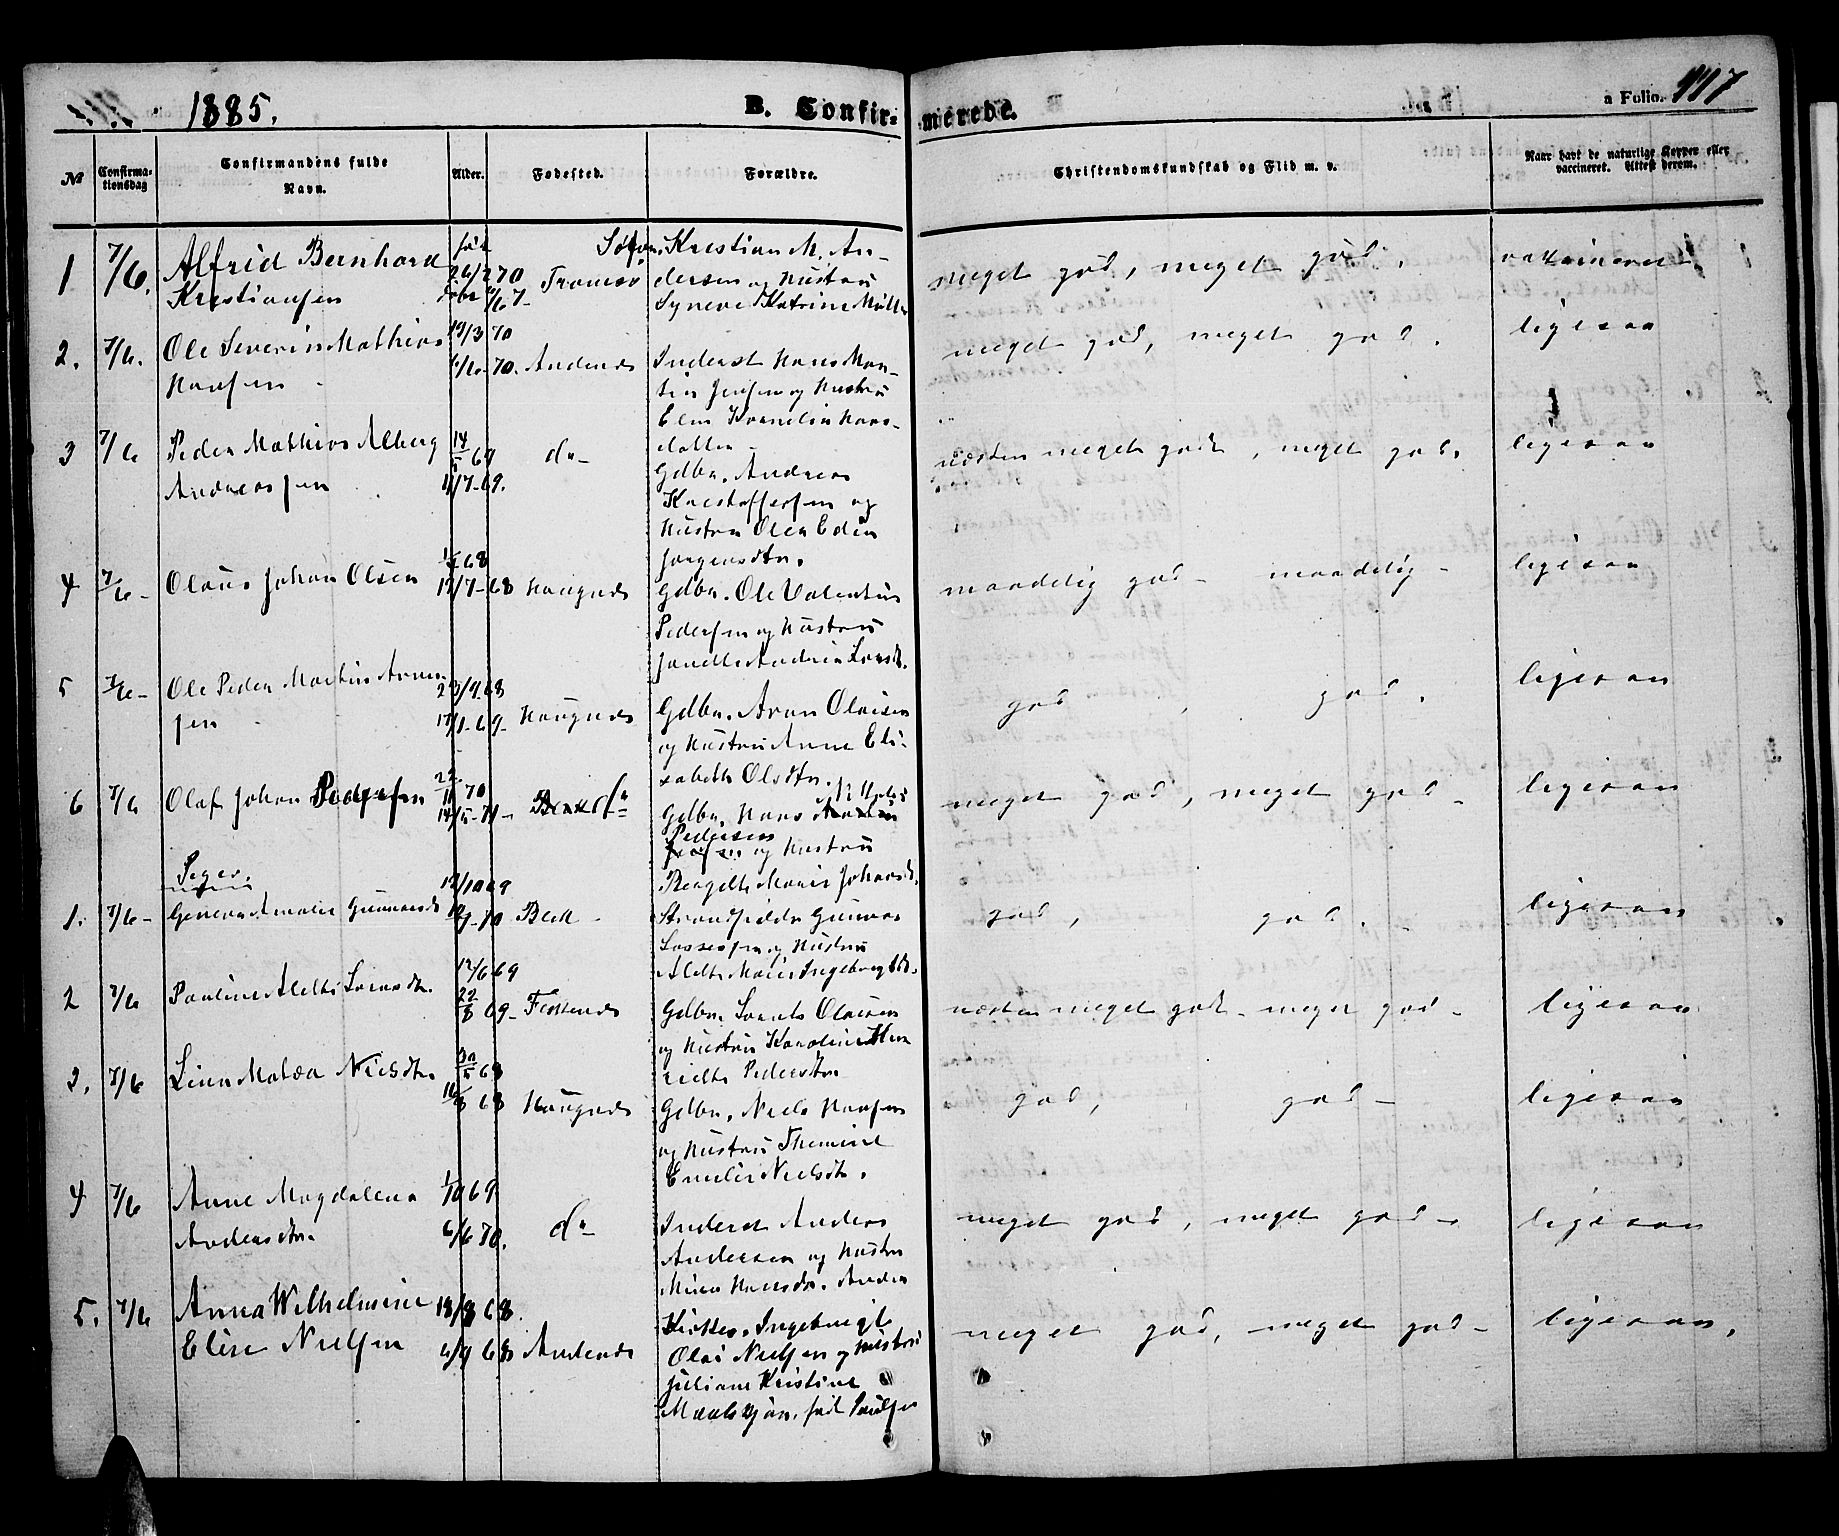 1885.
B. Confirmerede.
a Folio. 117
№
Confirmationsdag
Confirmandens fulde Navn.
Alder.
Fødested.
Forældre.
Christendomskundskab og Flid m. v.
Naar havt de naturlige Kopper eller vaccineret. Attest derom.
1 7/6. Alfrid Bernhard født 26/2 70 Tromsø Kristian M. An-
Kristiansen dersen og Hustru
Syneve Katrine
meget god, meget god. vakcineret
2. 7/6. Ole Severin Mathias 19/3 70
Hansen 70. Andenes Inderst Hans Mar-
tin Jensen og Hustru
Elen Kornelia Hans-
datter
meget god, meget god. ligesaa
3 7/6 Peder Mathias Alberg 14/5 69 do-
Andreassen 11/7-69. Gdbr. Andreas
Kristoffersen og
Hustru Olea Edia
Jørgensdtr.
næsten meget godt, meget god. ligesaa
4 7/6- Olaus Johan Olsen 68
12/7-68 Haugnes Gdbr. Ole Valentin
Pedersen og Hustru
maadelig god- maadelig- ligesaa
5 7/6- Ole Peder Martin Aron- 23/9 68
sen 17/1-69- Haugnes Gdbr. Aron Olaisen
og Hustru Anne Eli-
sabeth Olsdtr.
god, god. ligesaa
6 7/6 Olaf Johan Pedersen 70
71- Gdbr. Hans
Pedersen og Hustru
Bergitte Marie Johansd.
meget god, meget god- ligesaa
Piger.
1. 7/6- Amalie Gunnarsd. 12/10 69
70 Bleik- Strandsidder Gunnar
Lassesen og Hustru
Aletta Marie Ingebrigtsd.
god, god. ligesaa
2 7/6 Pauline Aletta Lornsdtr. 12/6 69
22/8 69- Gdbr. Lornts Olaisen
og Hustru Karoline Hen
rikke Pedersdtr.
næsten meget godt- meget god- ligesaa
2. 7/6 Lina Nielsdtr. 30/5 68
16/8 68 Haugnes Gdbr. Niels Hansen
og Hustru
Emilie Nielsdtr.
god, god- ligesaa
4 7/6 Anne Magdalena 1/10 69
Andersdtr. 6/6 70. do- Inderst Anders
Andersen og Hustru
Hansdtr. Andenes
meget god, meget god- ligesaa
5. 7/6 Anna Wilhelmine 18/8 68.
Elise Nielsen 4/9 68 Andenes Kirkes. Ingebrigt
Olai Nielsen og Hustru
Juliane Kristine
født Paulsen
meget god, meget god- ligesaa.